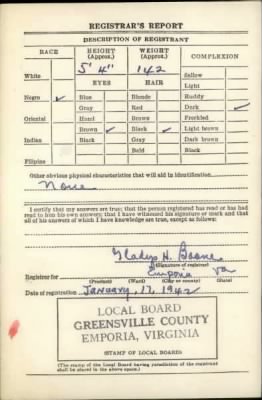 REGISTRAR'S REPORT
DESCRIPTION OF REGISTRANT
RACE HEIGHT (Approx.) WEIGHT (Approx.) COMPLEXION
5' 4" 142
White Sallow
EYES HAIR Light
Negro ✓ Blue Blonde Ruddy
Gray Red Dark ✓
Oriental Hazel Brown Freckled
Brown ✓ Black ✓ Light brown
Indian Black Gray Dark brown
Bald Black
Filipino
Other obvious physical characteristics that will aid in identification
None
I certify that my answers are true; that the person registered has read or has had
read to him his own answers; that I have witnessed his signature or mark and that
all of his answers of which I have knowledge are true, except as follows:
Gladys H. Boone
(Signature of registrar)
Registrar for Emporia Va
(Precinct) (Ward) (City or county) (State)
Date of registration January, 17, 1942
LOCAL BOARD
GREENSVILLE COUNTY
EMPORIA, VIRGINIA
(STAMP OF LOCAL BOARD)
(The stamp of the Local Board having jurisdiction of the registrant
shall be placed in the above space.)